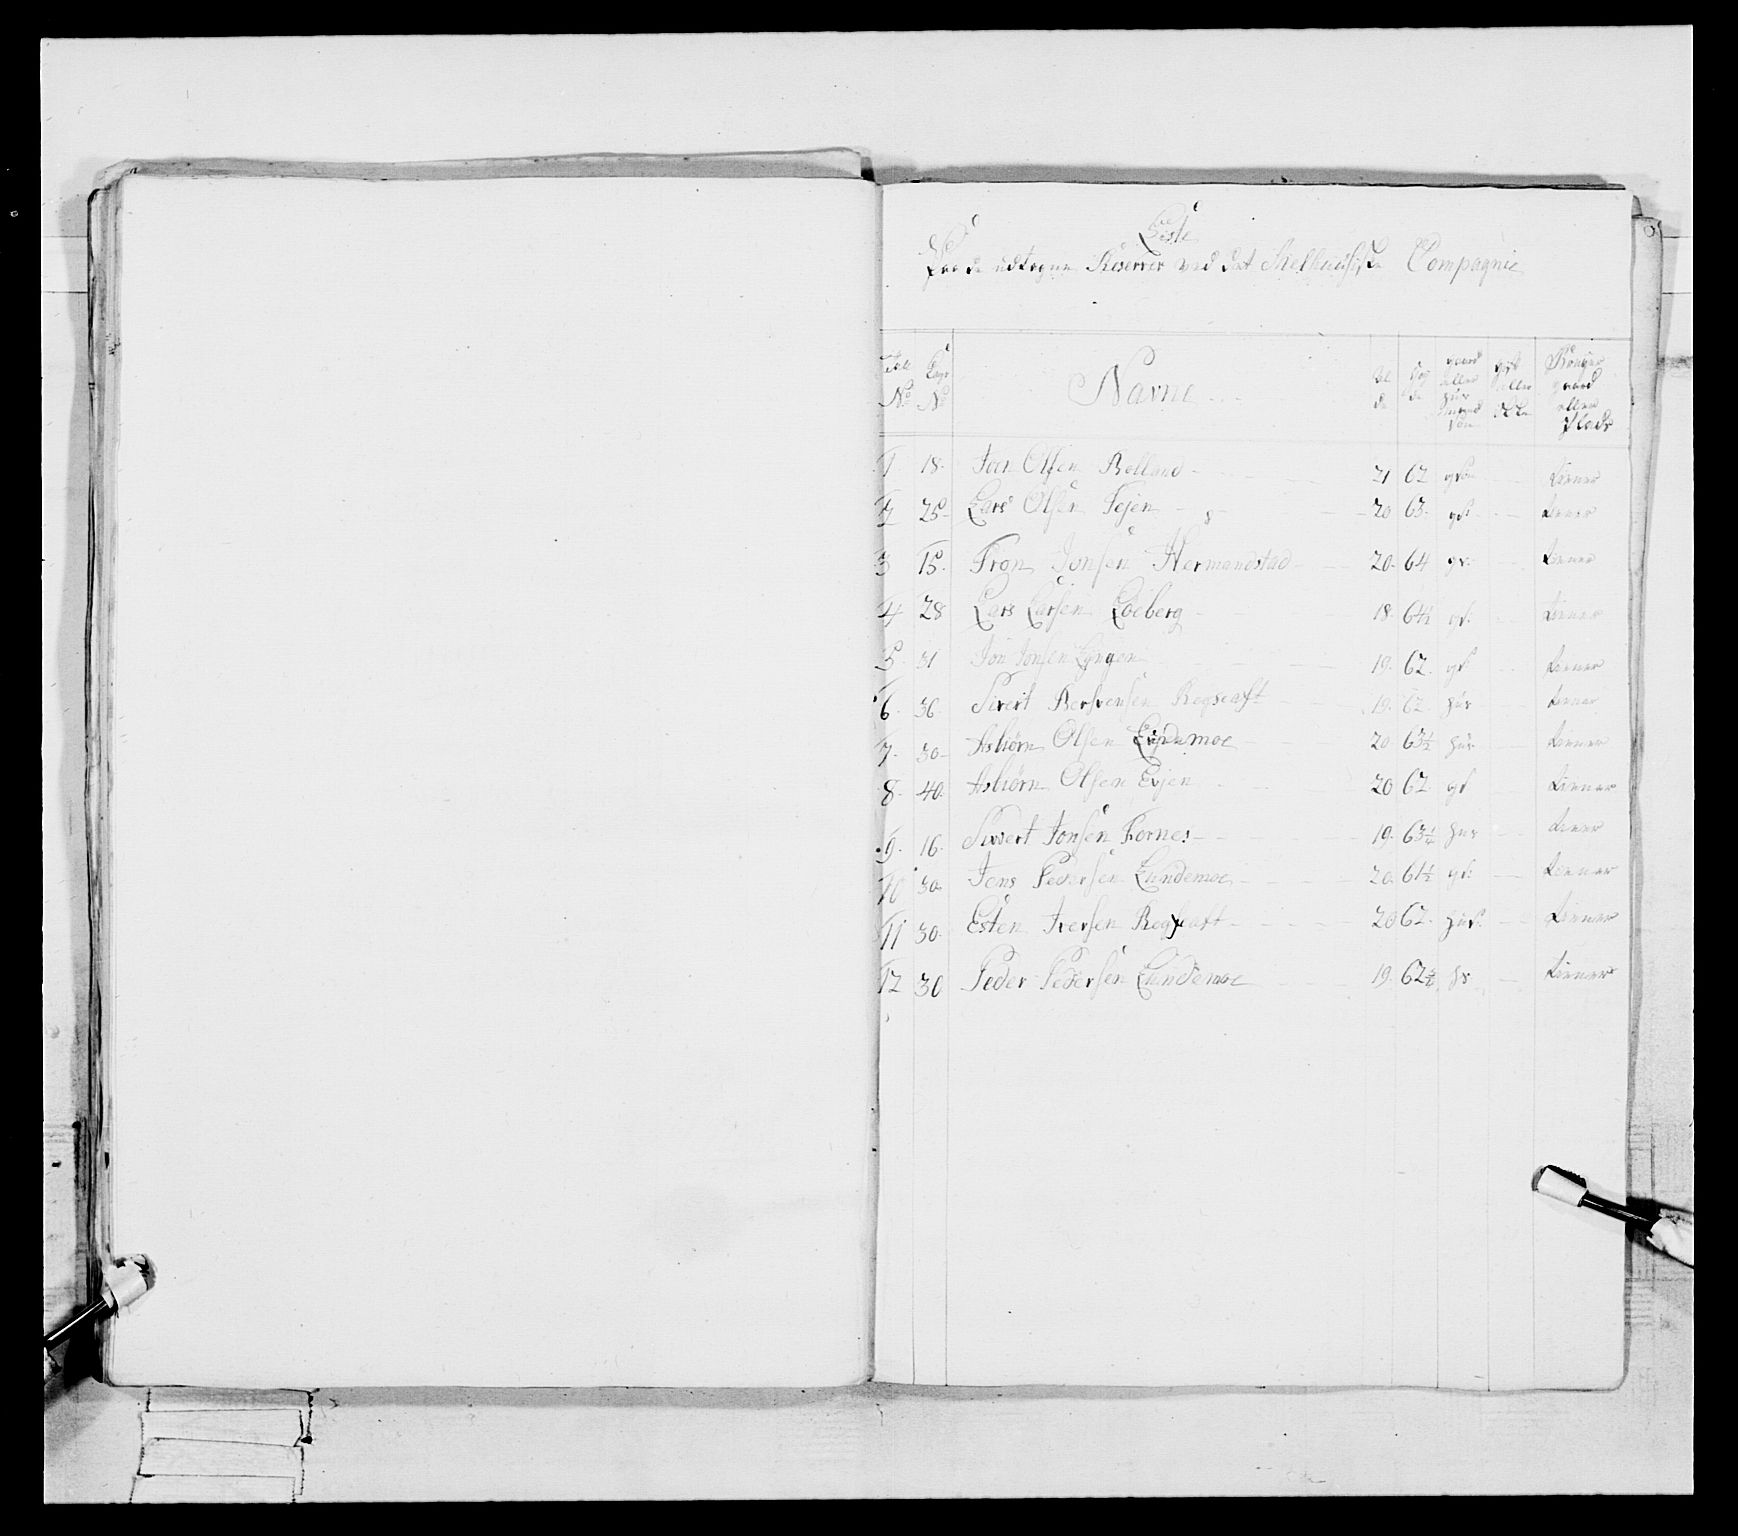 Liste
Paa de udtagne Reserver ved det Melhuusiske Compagnie
Tall No Lægs No Navne Al de Høy de gaard eller huus mands Søn gift eller Ikke Bruger gaard eller Plads
1 18 Joen Olsen Bolland 21 62 gsøn tiener
2 25 Lars Olsen Tejen 20 63 gs: tiener
3 15 Tron Jonsen Hermandstad 20 64 gs: tiener
4 28 Lars Larsen Loeberg 18 64½ gs: tiener
5 31 Jon Jonsen Lyngen 19 62 gs tiener
6 36 Sivert Bersvensen Rogseaft 19 62 huus tiener
7 30 Asbiørn Olsen Lundemoe 20 63½ huus tiener
8 40 Asbiørn Olsen Evjen 20 62 gs tiener
9 16 Siwert Jonsen Fornes 19 63¼ huus tiener
10 30 Jens Pedersen Lundemoe 20 61½ gs: tiener
11 30 Esten Iversen Rogseaft 20 62 huus tiener
12 30 Peder Pedersen Lundemoe 19 62½ hs tiener